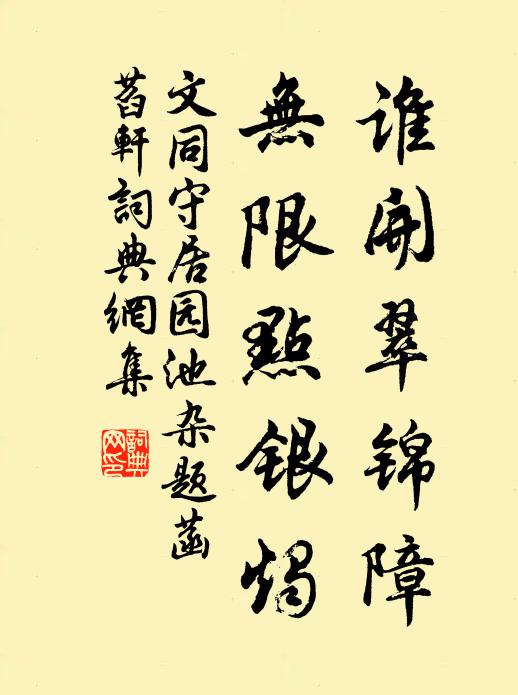 谁開翠锦障
無限點银燭
文同守居园池杂题菡
萏軒詞典網集
詞典网印